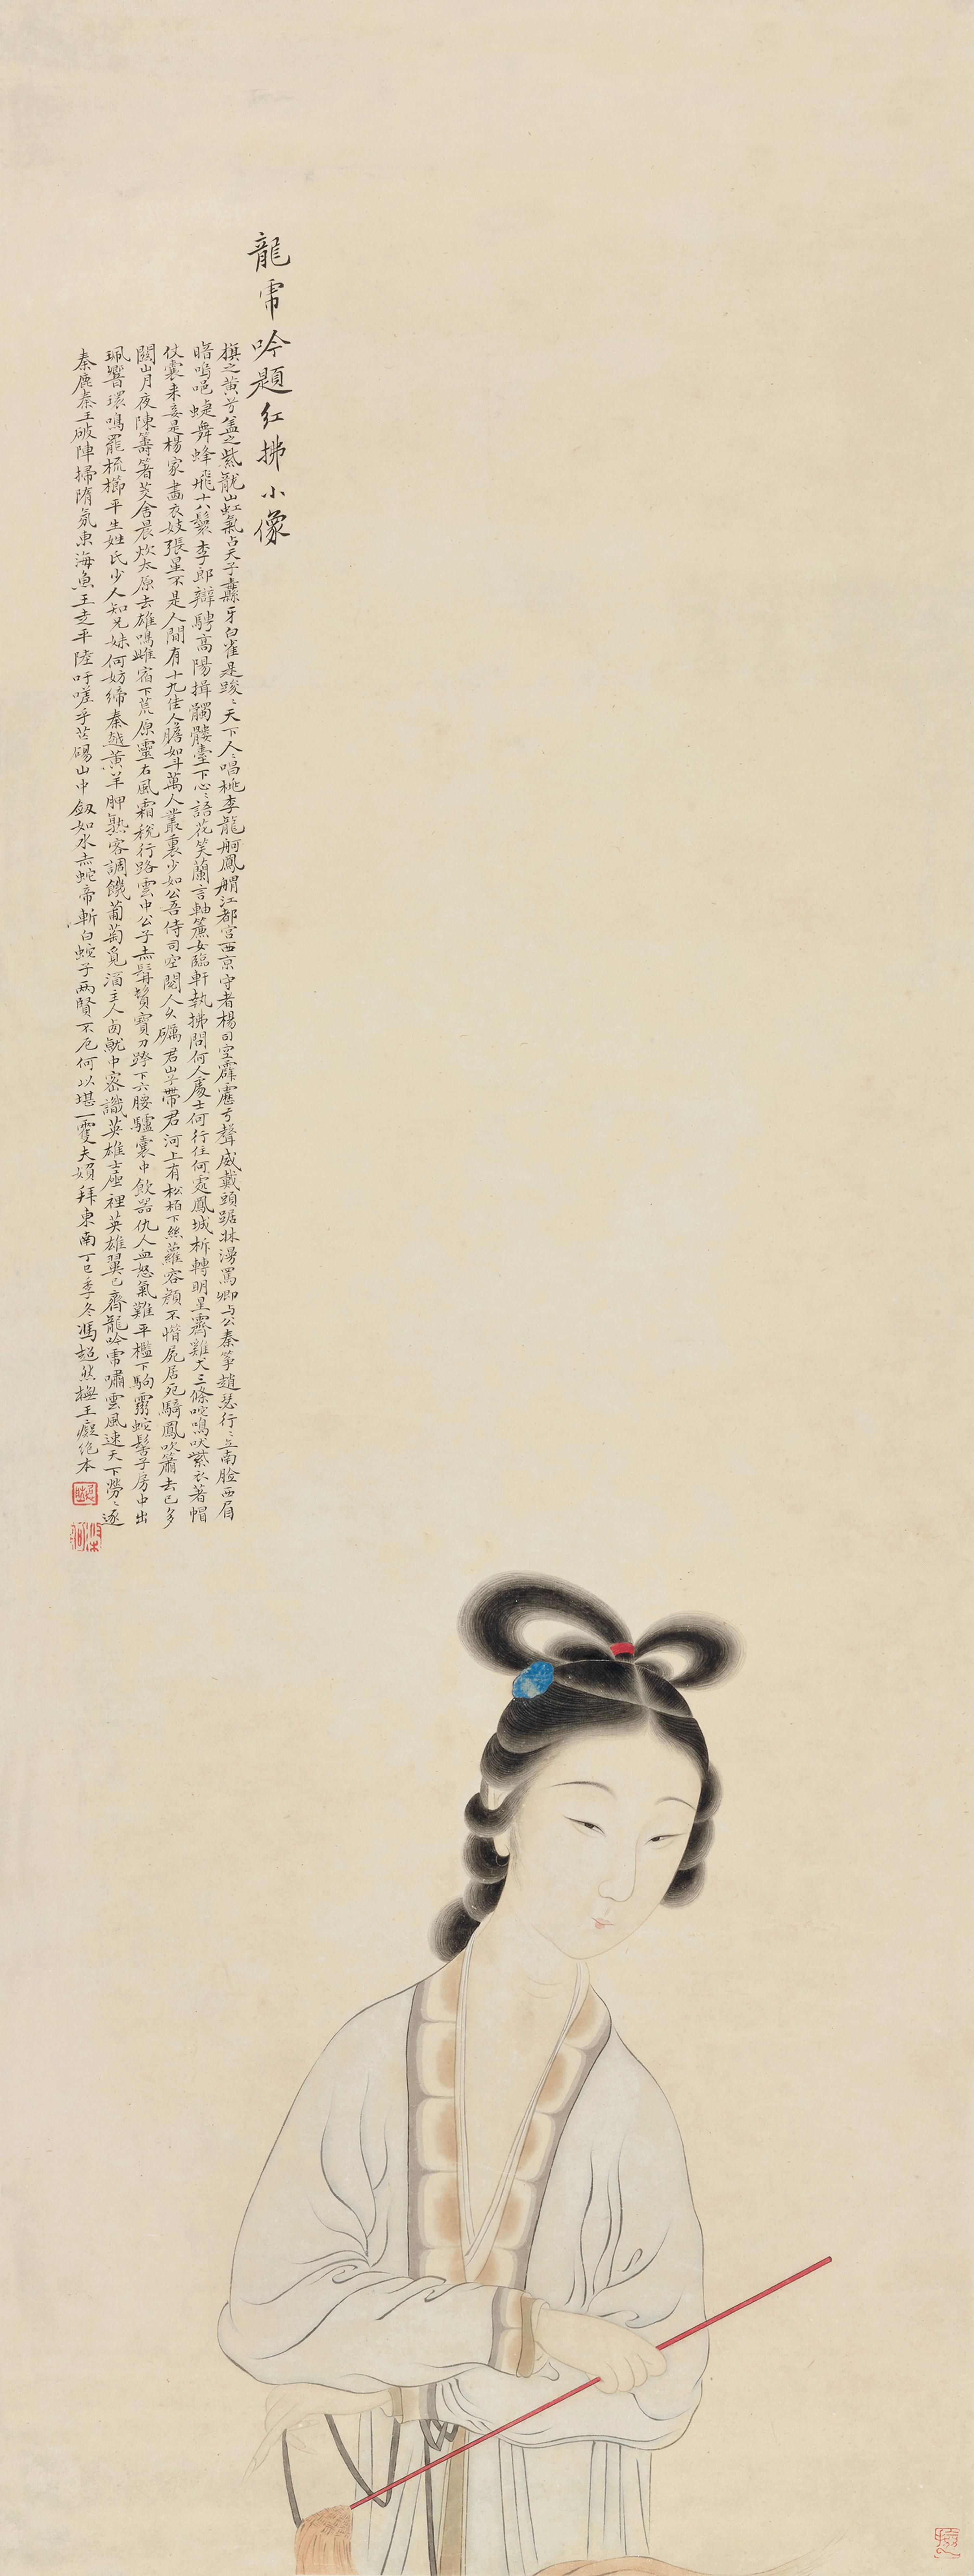 龍虎吟題紅拂小像
旗之黃兮蓋之紫龍山虹氣占天子纛牙白雀是踆〻天下人〻唱桃李龍舸鳳艒江都宮西京守者楊司空霹靂兮聲威戴頭踞牀漫罵卿与公秦箏趙瑟行〻立南臉西眉
喑嗚唈蜨舞蜂飛十八鬟李郎辯騁高陽揖髑髏臺下心〻語花笑蘭言軸簾女臨軒執拂問何人處士何行住何處鳳城柝轉明星霽雞犬三條咤鳴吠紫衣著帽
仗囊来妾是楊家畫衣妓張星不是人間有十九佳人膽如斗萬人叢裏少如公吾侍司空閱人久礪君山子帶君河上有松栢下絲蘿容顏不惜屍居死騎鳳吹簫去已多
關山月夜陳籌箸茭舍晨炊太原去雄鳴雌宿下荒原靈石風霜稅行路雲中公子赤髯鬚寶刀跨下六腰驢囊中飲器仇人血怒氣難平檻下駒霧蛇髻子房中出
珮響環鳴罷梳櫛平生姓氏少人知兄妹何妨締秦越黃羊胛熟客調饑葡萄覓湎主人卣觥中密識英雄士座裡英雄翼已齊龍吟虎嘯雲風速天下勞〻逐
秦鹿秦王破陣掃隋氛東海魚王走平陸吁嗟乎芒碭山中劔如水赤蛇帝斬白蛇子兩賢不厄何以堪一雙夫婦拜東南丁巳季冬馮超然橅王癡絶本